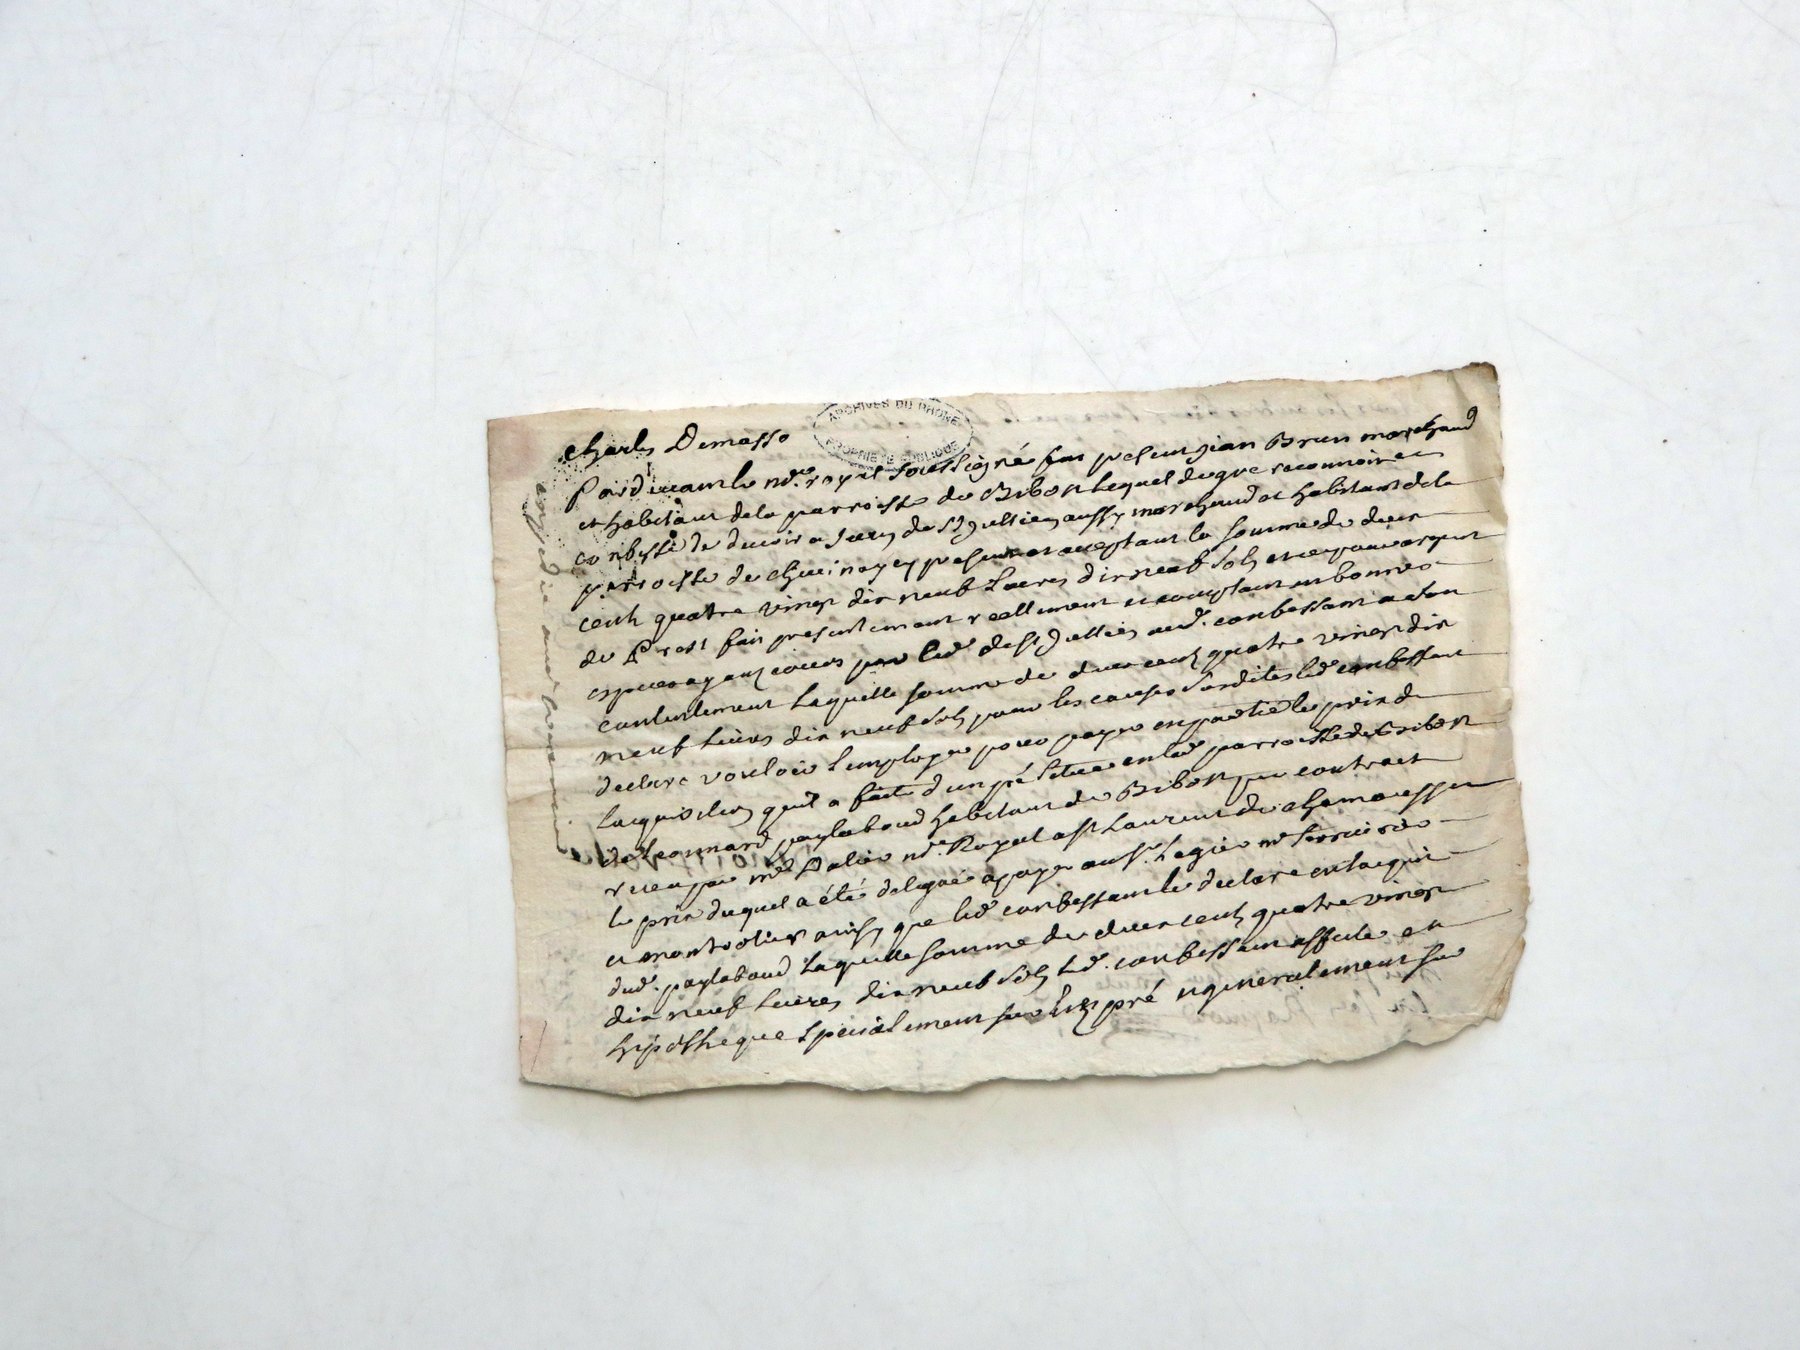 Charles Demasso
ARCHIVES DU RHONE
PROPRIETE PUBLIQUE
Pardevant le nore. royal soussigné fut present jean Brun marchand
et habitant de la parroisse de Bibost lequel de gré reconnoit et
confesse de devoir a de st jullien aussy marchand et habitant de la
parroisse de present et acceptant la somme de deux
cents quatre vingt dix neuf livres dix neuf sols
de prest fait presentement reellement et comptant en bonnes
especes ayant cours par led. de st jullien aud. confessant a son
contentement laquelle somme de deux cents quatre vingt dix
neuf livres dix neuf sols pour les causes susdites led. confessant
declare vouloir employer pour payer en partie le prix de
lacquisition quil a faite dun pré situé en lad. parroisse de Bibost
de Leonnard paylaboud habitant de Bibost par contract
receu par me. nore. Royal a st Laurent de chamousset
le prix duquel a été delegué a payer au sr. Legier me
et ainsy que led. confessant le declare en lacquit
dud. paylaboud laquelle somme de deux cents quatre vingt
dix neuf livres dix neuf sols led. confessant affecte et
hipotheque specialement sur led. pré et generalement sur